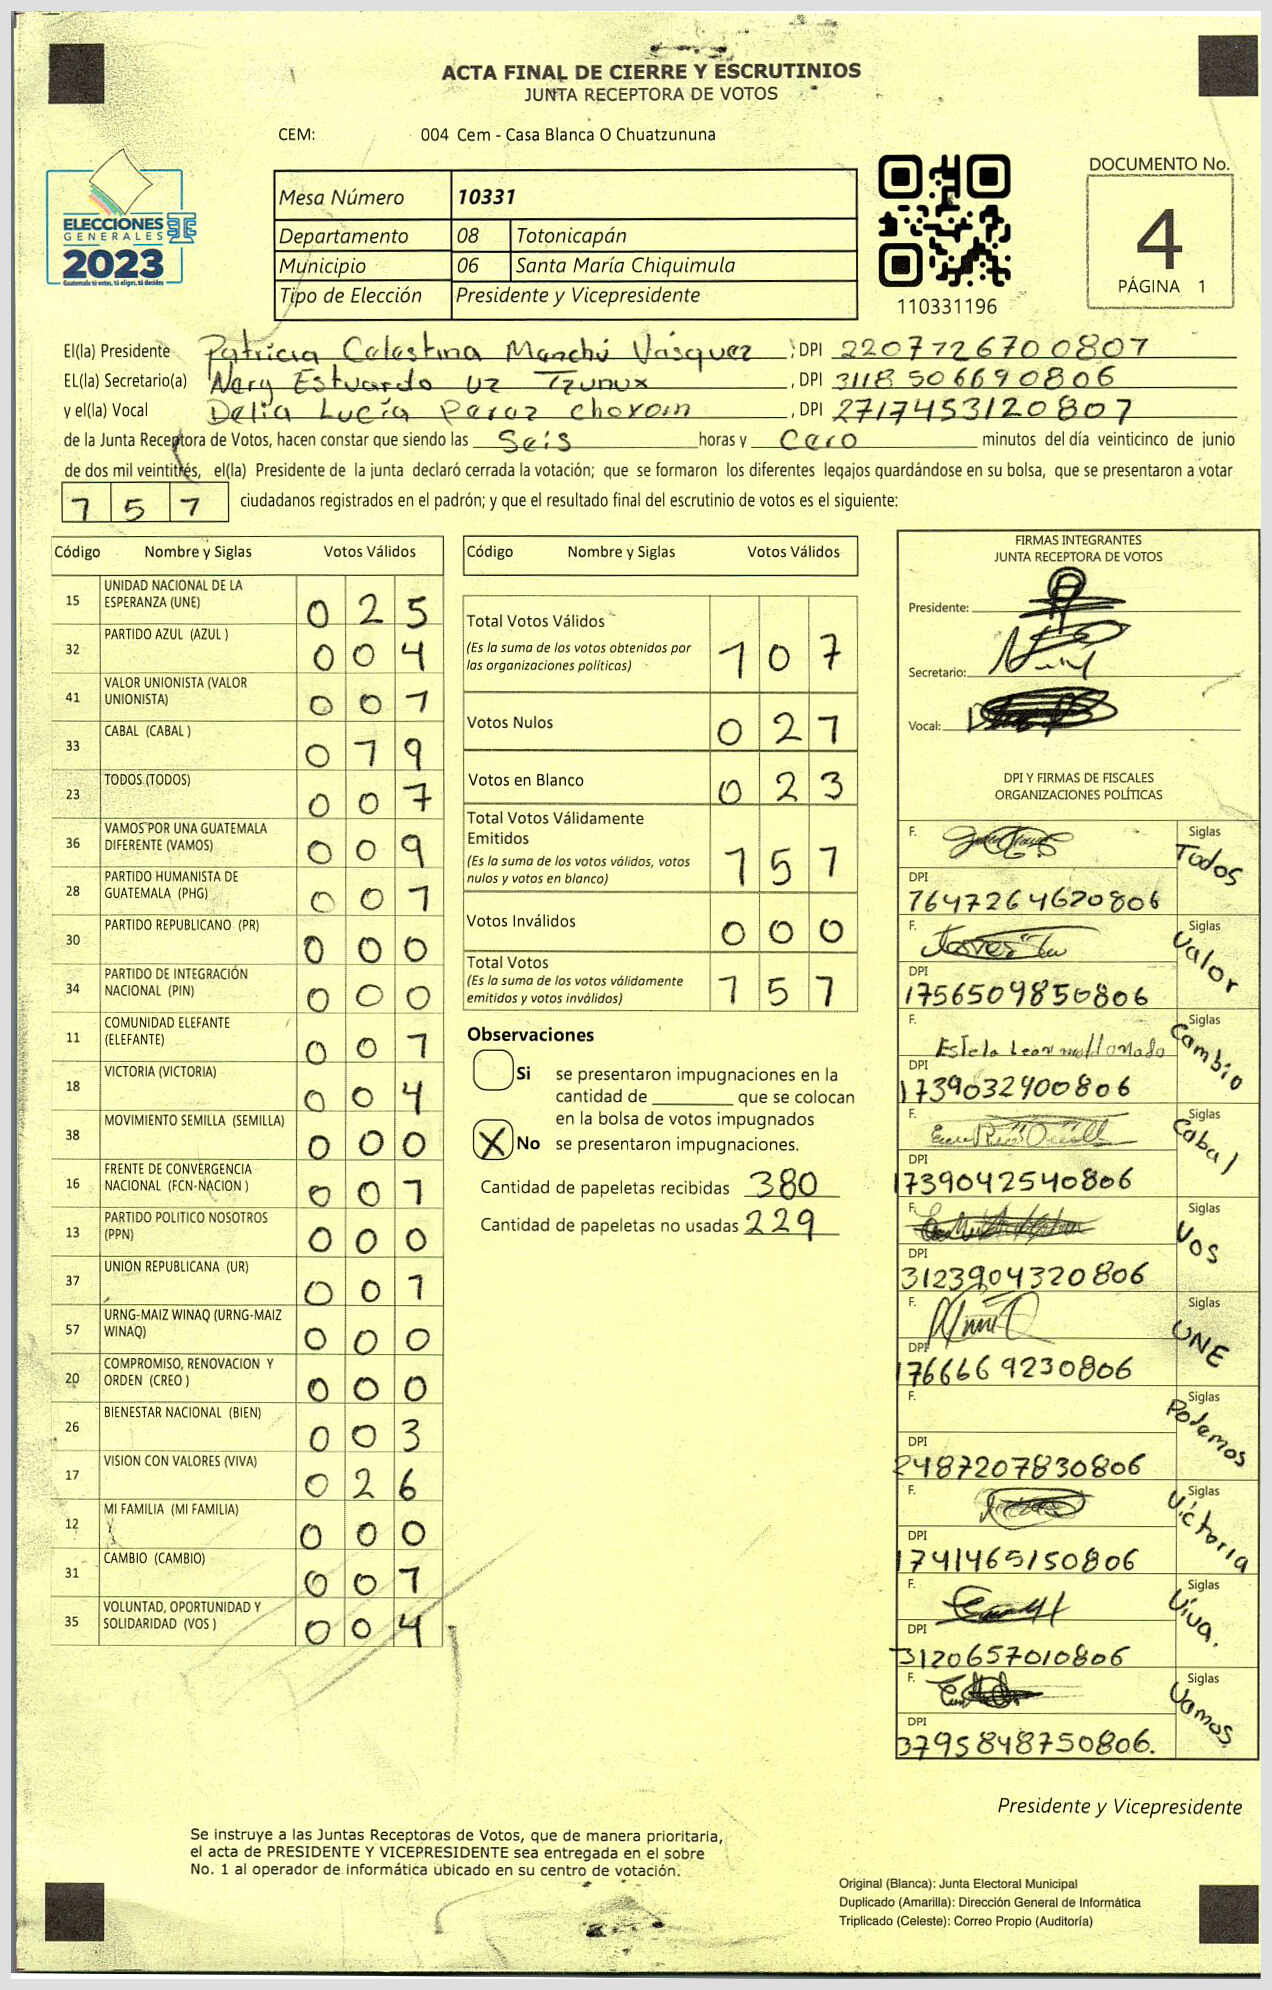 ACTA FINAL DE CIERRE Y ESCRUTINIOS
JUNTA RECEPTORA DE VOTOS
CEM: 004 Cem - Casa Blanca O Chuatzununa
ELECCIONES
GENERALES
2023
Guatemala tú votas, tú eliges, tú decides
Mesa Número 10331
Departamento 08 Totonicapán
Municipio 06 Santa María Chiquimula
Tipo de Elección Presidente y Vicepresidente
110331196
DOCUMENTO No.
4
PÁGINA 1
El(la) Presidente Patricia Celestina Menchú Vásquez , DPI 2207126700807
EL(la) Secretario(a) Nery Estuardo Uz Tzunux , DPI 3118506690806
y el(la) Vocal Delia Lucía Peraz , DPI 2717453120807
de la Junta Receptora de Votos, hacen constar que siendo las Seis horas y Cero minutos del día veinticinco de junio
de dos mil veintitrés, el(la) Presidente de la junta declaró cerrada la votación; que se formaron los diferentes legajos quardándose en su bolsa, que se presentaron a votar
151 ciudadanos registrados en el padrón; y que el resultado final del escrutinio de votos es el siguiente:
Código Nombre y Siglas Votos Válidos
15 UNIDAD NACIONAL DE LA ESPERANZA (UNE) 025
32 PARTIDO AZUL (AZUL ) 004
41 VALOR UNIONISTA (VALOR UNIONISTA) 001
33 CABAL (CABAL ) 019
23 TODOS (TODOS) 007
36 VAMOS POR UNA GUATEMALA DIFERENTE (VAMOS) 009
28 PARTIDO HUMANISTA DE GUATEMALA (PHG) 001
30 PARTIDO REPUBLICANO (PR) 000
34 PARTIDO DE INTEGRACIÓN NACIONAL (PIN) 000
11 COMUNIDAD ELEFANTE (ELEFANTE) 001
18 VICTORIA (VICTORIA) 004
38 MOVIMIENTO SEMILLA (SEMILLA) 000
16 FRENTE DE CONVERGENCIA NACIONAL (FCN-NACION ) 001
13 PARTIDO POLITICO NOSOTROS (PPN) 000
37 UNION REPUBLICANA (UR) 001
57 URNG-MAIZ WINAQ (URNG-MAIZ WINAQ) 000
20 COMPROMISO, RENOVACION Y ORDEN (CREO ) 000
26 BIENESTAR NACIONAL (BIEN) 003
17 VISION CON VALORES (VIVA) 026
12 MI FAMILIA (MI FAMILIA) 000
31 CAMBIO (CAMBIO) 001
35 VOLUNTAD, OPORTUNIDAD Y SOLIDARIDAD (VOS ) 004
Código Nombre y Siglas Votos Válidos
Total Votos Válidos 107
(Es la suma de los votos obtenidos por
las organizaciones políticas)
Votos Nulos 021
Votos en Blanco 023
Total Votos Válidamente
Emitidos 151
(Es la suma de los votos válidos, votos
nulos y votos en blanco)
Votos Inválidos 000
Total Votos 151
(Es la suma de los votos válidamente
emitidos y votos inválidos)
Observaciones
Si se presentaron impugnaciones en la
cantidad de ________ que se colocan
en la bolsa de votos impugnados
X No se presentaron impugnaciones.
Cantidad de papeletas recibidas 380
Cantidad de papeletas no usadas 229
FIRMAS INTEGRANTES
JUNTA RECEPTORA DE VOTOS
Presidente:
Secretario:
Vocal:
DPI Y FIRMAS DE FISCALES
ORGANIZACIONES POLÍTICAS
F. Siglas Todos
DPI 1647264620806
F. Siglas Valor
DPI 1756509850806
F. Estela Siglas Cambio
DPI 1739032400806
F. Siglas Cabal
DPI 1739042540806
F. Siglas Vos
DPI 3123904320806
F. Siglas UNE
DPI 1766669230806
F. Siglas Podemos
DPI 2487207830806
F. Siglas Victoria
DPI 1741465150806
F. Siglas Viva.
DPI 3120657010806
F. Siglas Vamos
DPI 3795848750806.
Presidente y Vicepresidente
Se instruye a las Juntas Receptoras de Votos, que de manera prioritaria,
el acta de PRESIDENTE Y VICEPRESIDENTE sea entregada en el sobre
No. 1 al operador de informática ubicado en su centro de votación.
Original (Blanca): Junta Electoral Municipal
Duplicado (Amarilla): Dirección General de Informática
Triplicado (Celeste): Correo Propio (Auditoría)